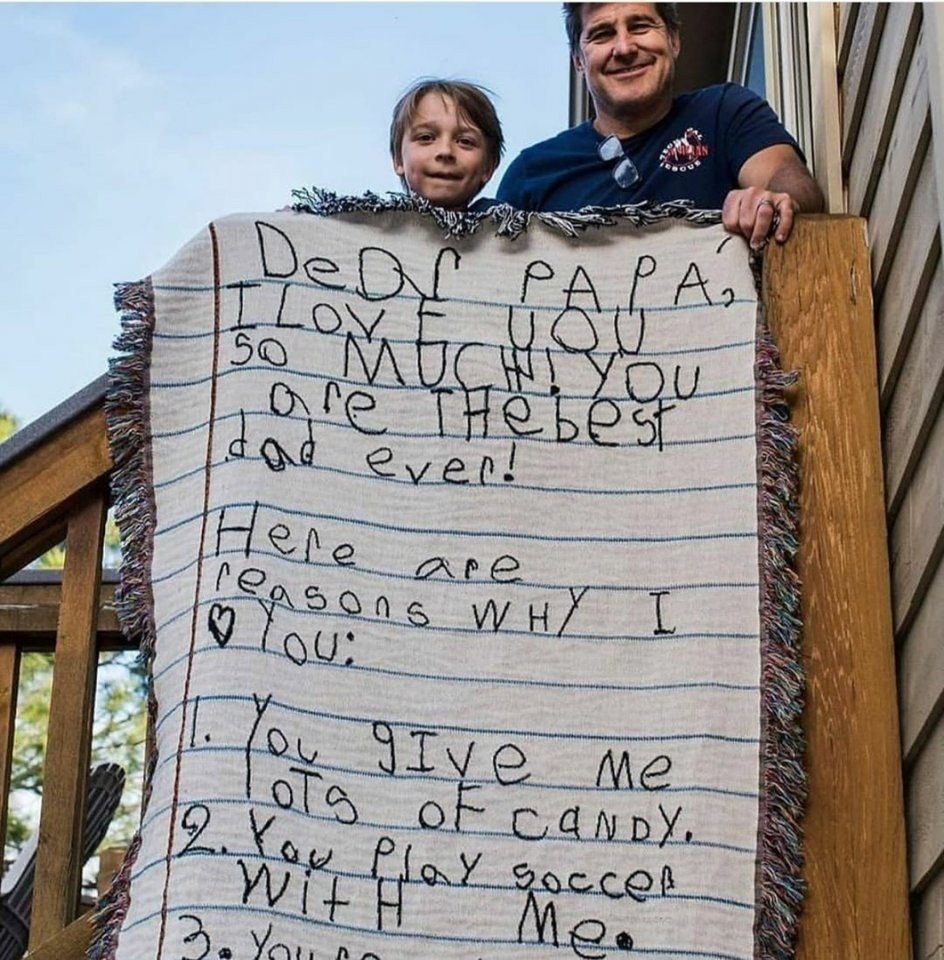 DeAr PAPA,
I LovE YOU
so MUCH! YOU
are THe best
dad ever!
Here are
reasons WHY I
♥ You:
1. You gIve Me
loTs oF caNDY.
2. You Play soccer
WitH Me.
3. You